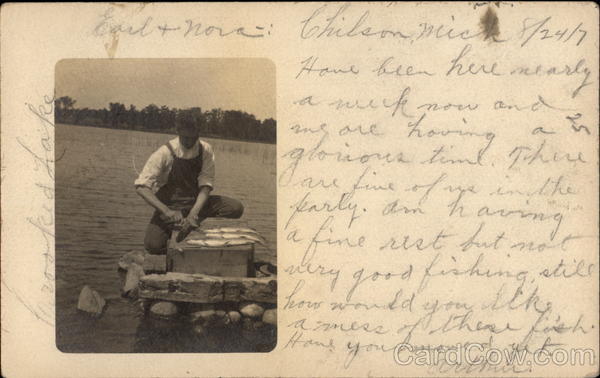 Earl + Nora:
Chilson, Mich 8/24/7
Have been here nearly
a week now and
we are having a
glorious time. There
are five of us in the
party. Am having
a fine rest but not
very good fishing, still
how would you like
a mess of these fish.
Have you moved yet
Crooked Lake
CardCow.com